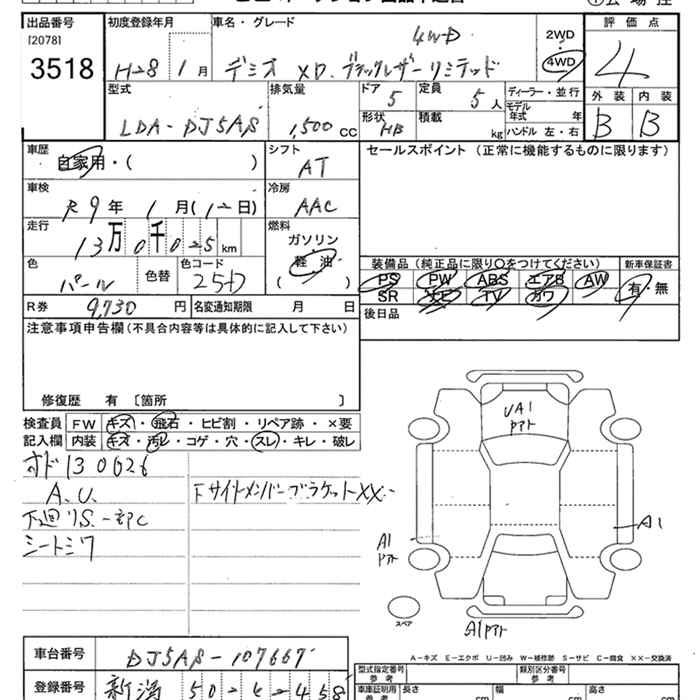 出品番号 初度登録年月 車名・グレード 評価点
[2078]
3518 H28年 1月 デミオ XD. ブラックレザーリミテッド 4WD 2WD 4WD 4
型式 排気量 ドア 定員 ディーラー・並行 外装 内装
LDA-DJ5AS 1,500cc 5 5人 モデル年式 年 B B
形状 HB 積載 kg ハンドル 左・右
車歴 シフト セールスポイント (正常に機能するものに限ります)
自家用・( ) AT
車検 冷房
R9年 1月(12日) AAC
走行 燃料
13万0千025km ガソリン
軽油
( )
色 色替 色コード 装備品 (純正品に限り○をつけてください) 新車保証書
パール 25D PS PW ABS エアB AW 有・無
SR ナビ TV カワ
R券 9,730円 名変通知期限 月 日 後日品
注意事項申告欄 (不具合内容等は具体的に記入して下さい)
修復歴 有 〔箇所 〕
検査員 FW キズ・飛石・ヒビ割・リペア跡・×要
記入欄 内装 キズ・汚レ・コゲ・穴・スレ・キレ・破レ
オド130626
A.U.
下サイドメンバーブラケットXX
下廻りS.一部C
シートシワ
UA1
Pアト
A1
A1
Pアト
スペア
A1Pアト
A-キズ E-エクボ U-凹み W-補修跡 S-サビ C-腐食 XX-交換済
車台番号 DJ5AS-107667
型式指定番号 参考 類別区分番号 参考
登録番号 新潟 50 458
車庫証明用 参考 長さ cm 幅 cm 高さ cm